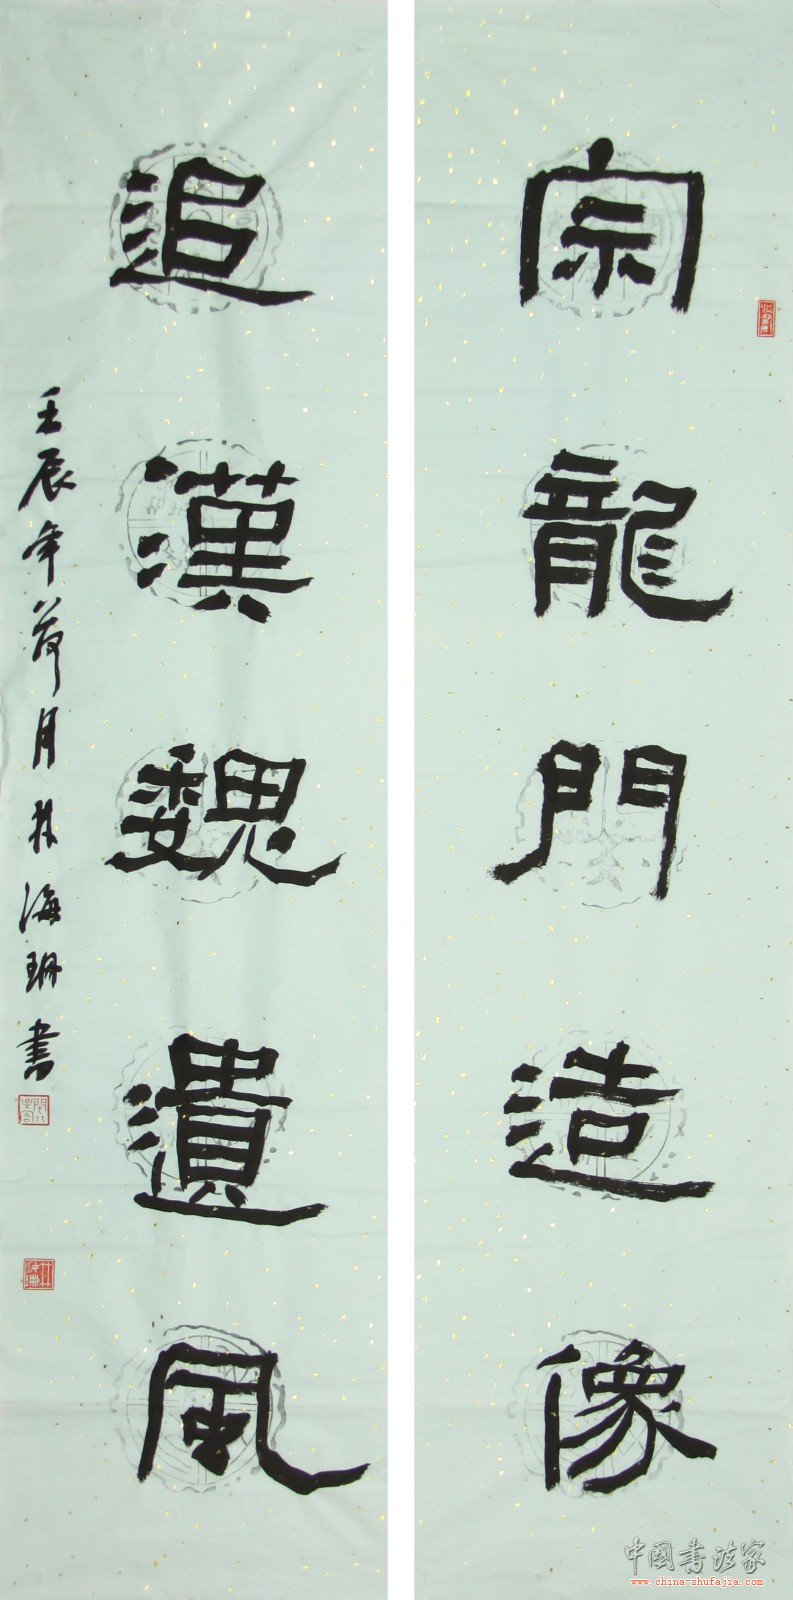 宗龍門造像
追漢魏遺風
壬辰年荷月林海珊書
中国书法家
www.china-shufajia.com